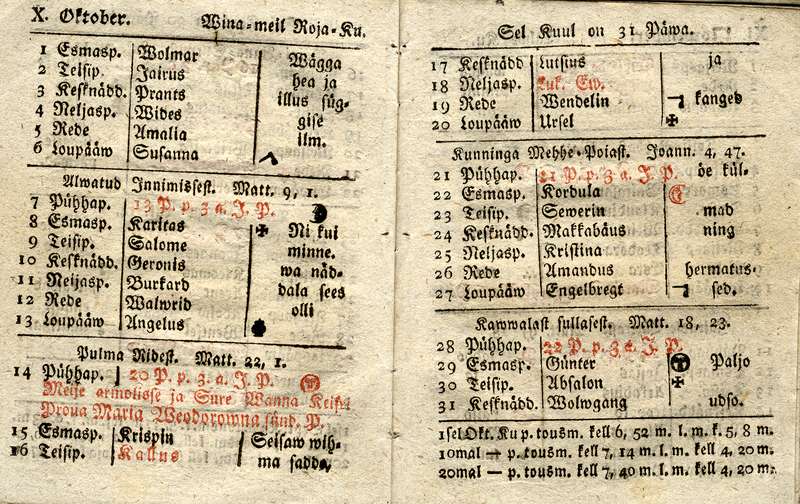 X. Oktober. Wina-meil Roja-Ku.
1 Esmasp. Wolmar Wägga
2 Teisip. Jairus hea ja
3 Kesknädd. Prants illus süg-
4 Neljasp. Wides gise
5 Rede Amalia ilm.
6 Loupääw Susanna
Alwatud Innimissest. Matt. 9, 1.
7 Pühhap. P. p. 3 a. J. P.
8 Esmasp. Karitas ✠ Ni kui
9 Teisip. Salome minne.
10 Kesknädd. Geronis wa näd-
11 Neljasp. Burkard dala sees
12 Rede Walwrid olli
13 Loupääw Angelus
Pulma Ridest. Matt. 22, 1.
14 Pühhap. 20 P. p. 3. a. J. P.
Meije armolisse ja Sure Wanna Keisri
Proua Maria Weodorowna sünd. P.
15 Esmasp. Krispin Seisaw wih-
16 Teisip. Kallus ma sadda,
Sel Kuul on 31 Päwa.
17 Kesknädd Lutsius ja
18 Neljasp. Luk. Ew.
19 Rede Wendelin kanged
20 Loupääw Ursel ✠
Kunninga Mehhe-Poiast. Joann. 4, 47.
21 Pühhap. 21 P. p. 3 a. J. P. öe kül-
22 Esmasp. Kordula
23 Teisip. Sewerin mad
24 Kesknädd. Makkabäus ning
25 Neljasp. Kristina
26 Rede Amandus hermatus-
27 Loupääw Engelbregt sed.
Kawwalast sullasest. Matt. 18, 23.
28 Pühhap. 22 P. p. 3 a. J. P.
29 Esmasp. Günter Paljo
30 Teisip. Absalon ✠
31 Kesknädd. Wolwgang udso.
1sel Okt. Ku p. tousm. kell 6, 52 m. l. m. k. 5, 8 m.
10mal — p. tousm. kell 7, 14 m. l. m. kell 4, 20 m.
20mal — p. tousm. kell 7, 40 m. l. m. kell 4, 20 m.